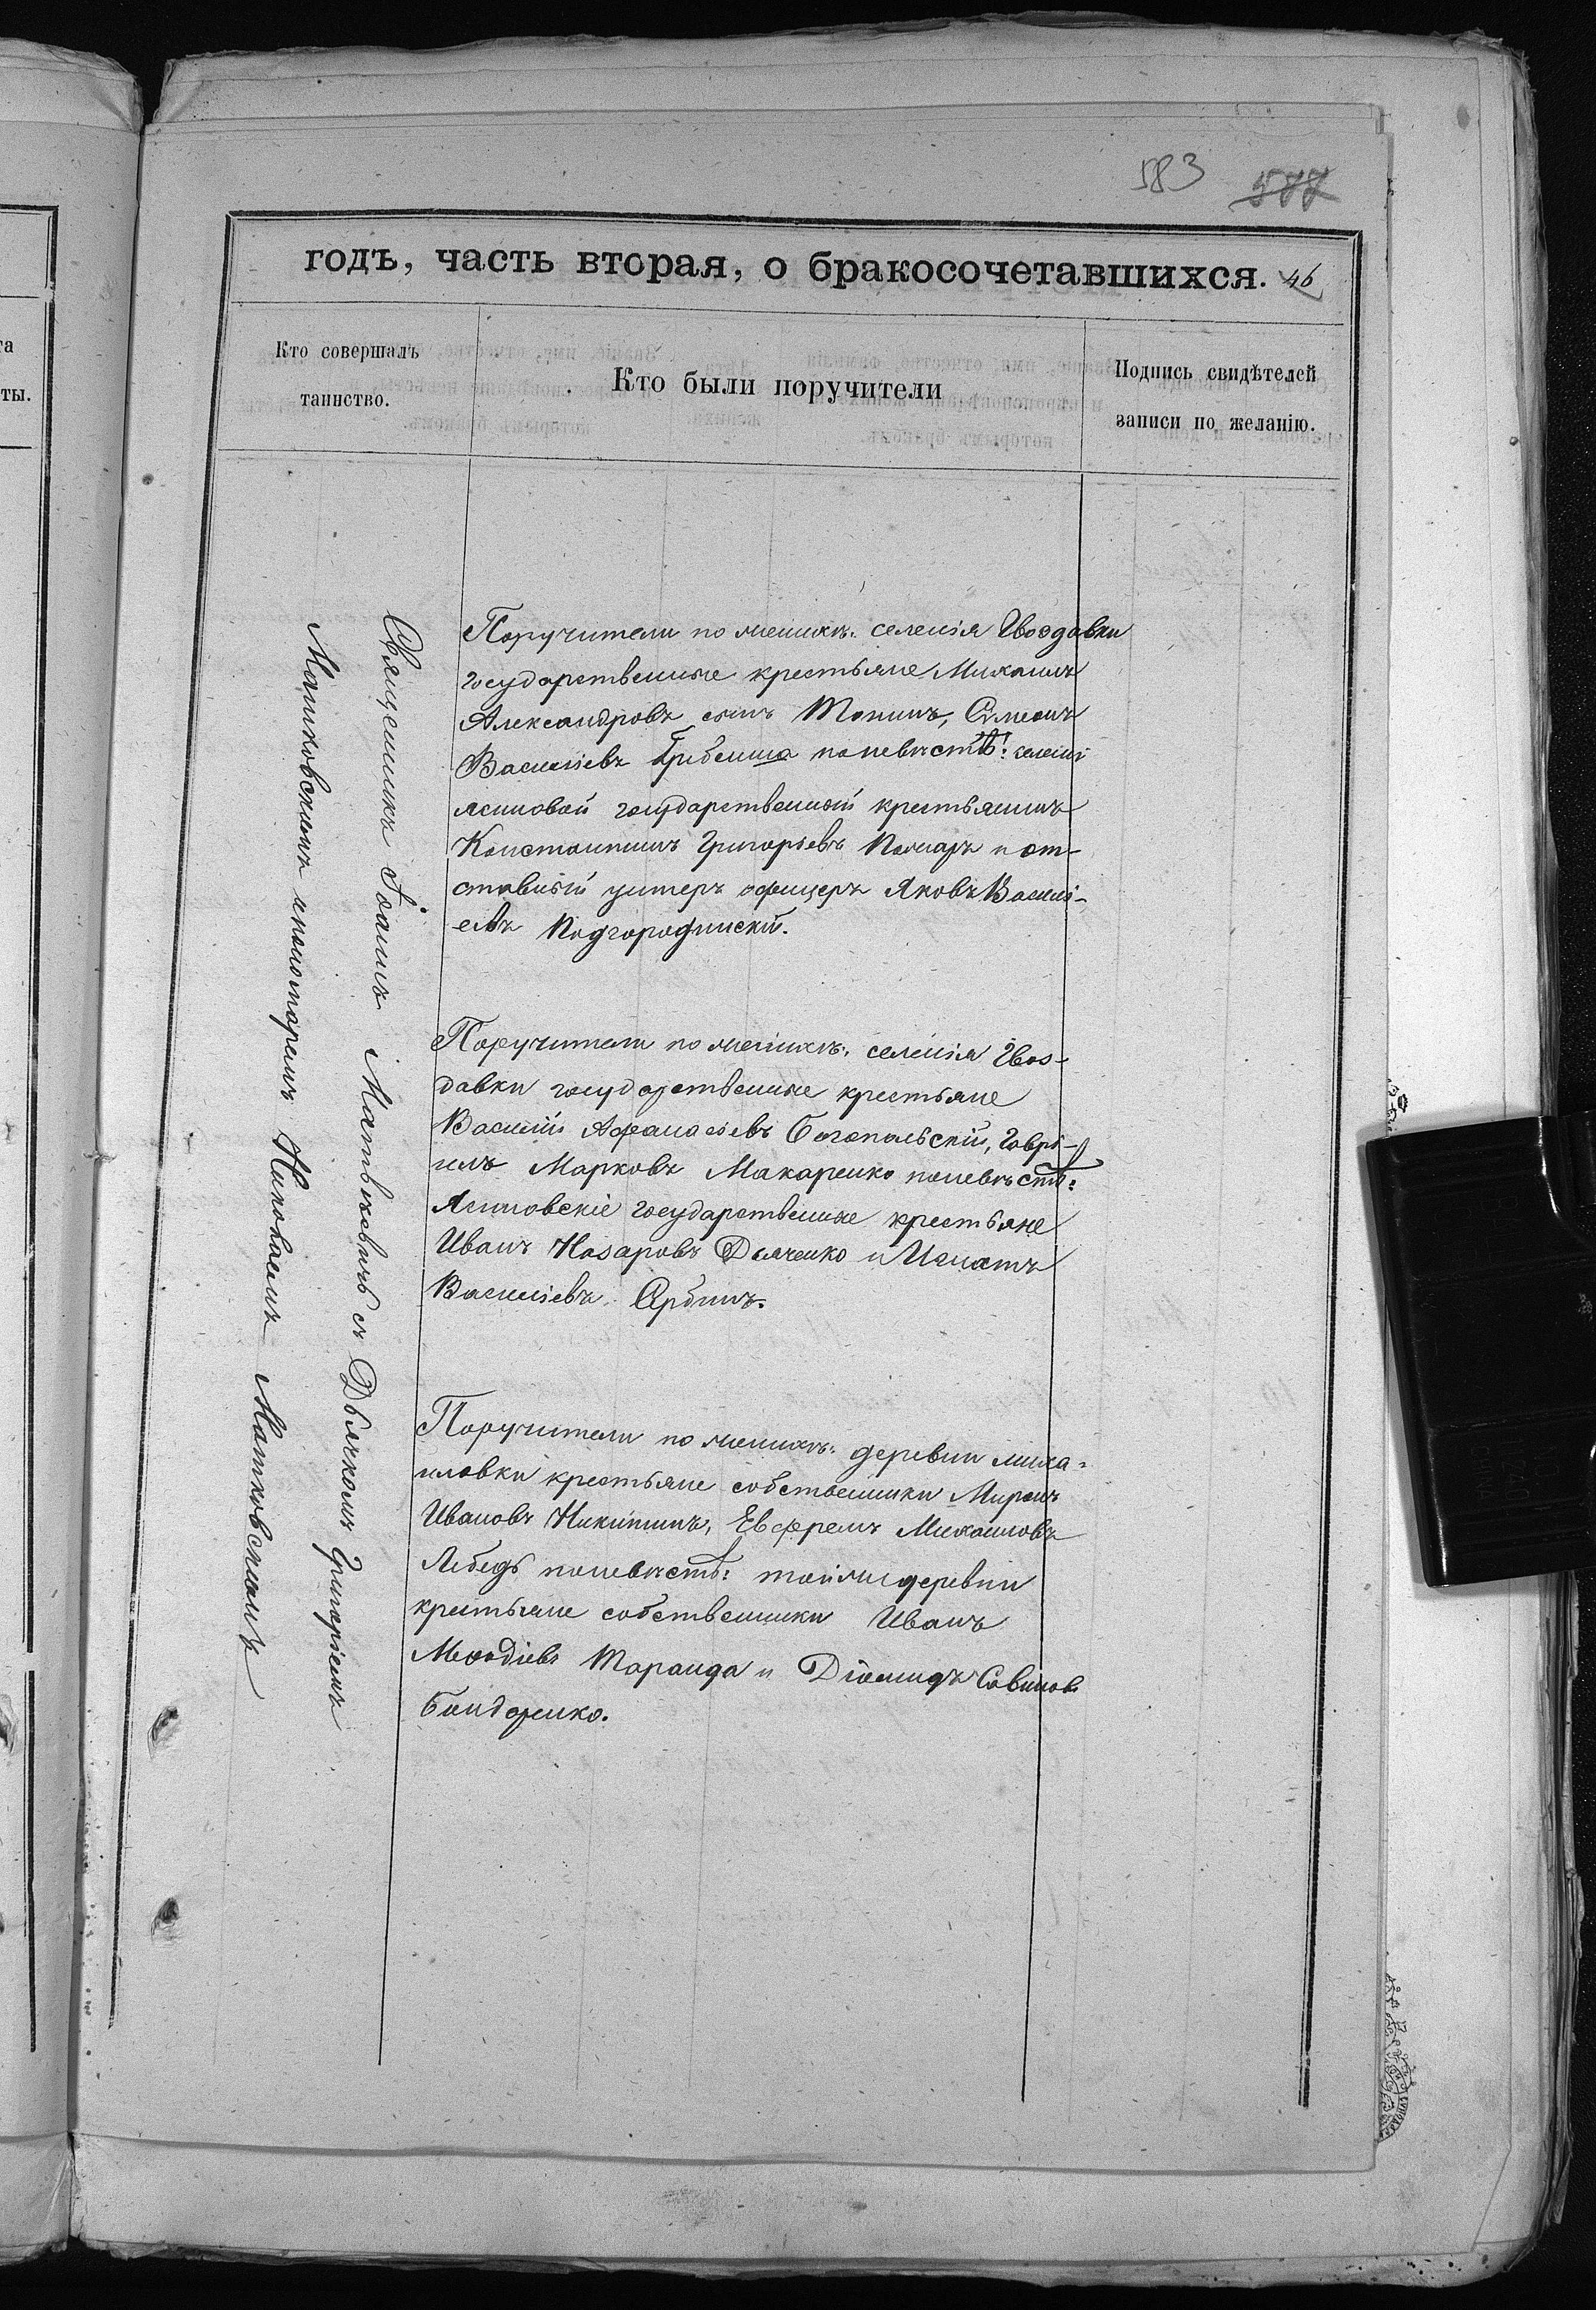 583 577
годъ, часть вторая, о бракосочетавшихся. 46
Кто совершалъ
таинство.
Кто были поручители
Подпись свидѣтелей
записи по желанію.
та
ты.
Священникъ Іоаннъ Матвѣевичъ съ Дьячкомъ Григоріемъ
Матковскимъ и пономаремъ Николаемъ Матковскимъ
Поручители по женихѣ: селенія Гвоздавки
государственные крестьяне Михаилъ
Александровъ сынъ Тонинъ, Симеонъ
Василіевъ Гребенша по невѣстѣ: селенія
Ясиновой государственный крестьянинъ
Константинъ Григоріевъ Паламаръ и от-
ставный унтеръ офицеръ Яковъ Василі-
евъ Подгородинскій.
Поручители по женихѣ: селенія Гвоз-
давки государственные крестьяне
Василій Афанасіевъ Богопольскій, Гаврі-
илъ Марковъ Макаренко по невѣстѣ:
Ясиновскіе государственные крестьяне
Иванъ Назаровъ Дьяченко и Игнатъ
Василіевъ Сербинъ.
Поручители по женихѣ: деревни Миха-
иловки крестьяне собственники Миронъ
Ивановъ Никитинъ, Евфремъ Михаиловъ
Лебедь по невѣстѣ: той же деревни
крестьяне собственники Иванъ
Меѳодіевъ Таранда и Діомидъ Савиновъ
Бондаренко.